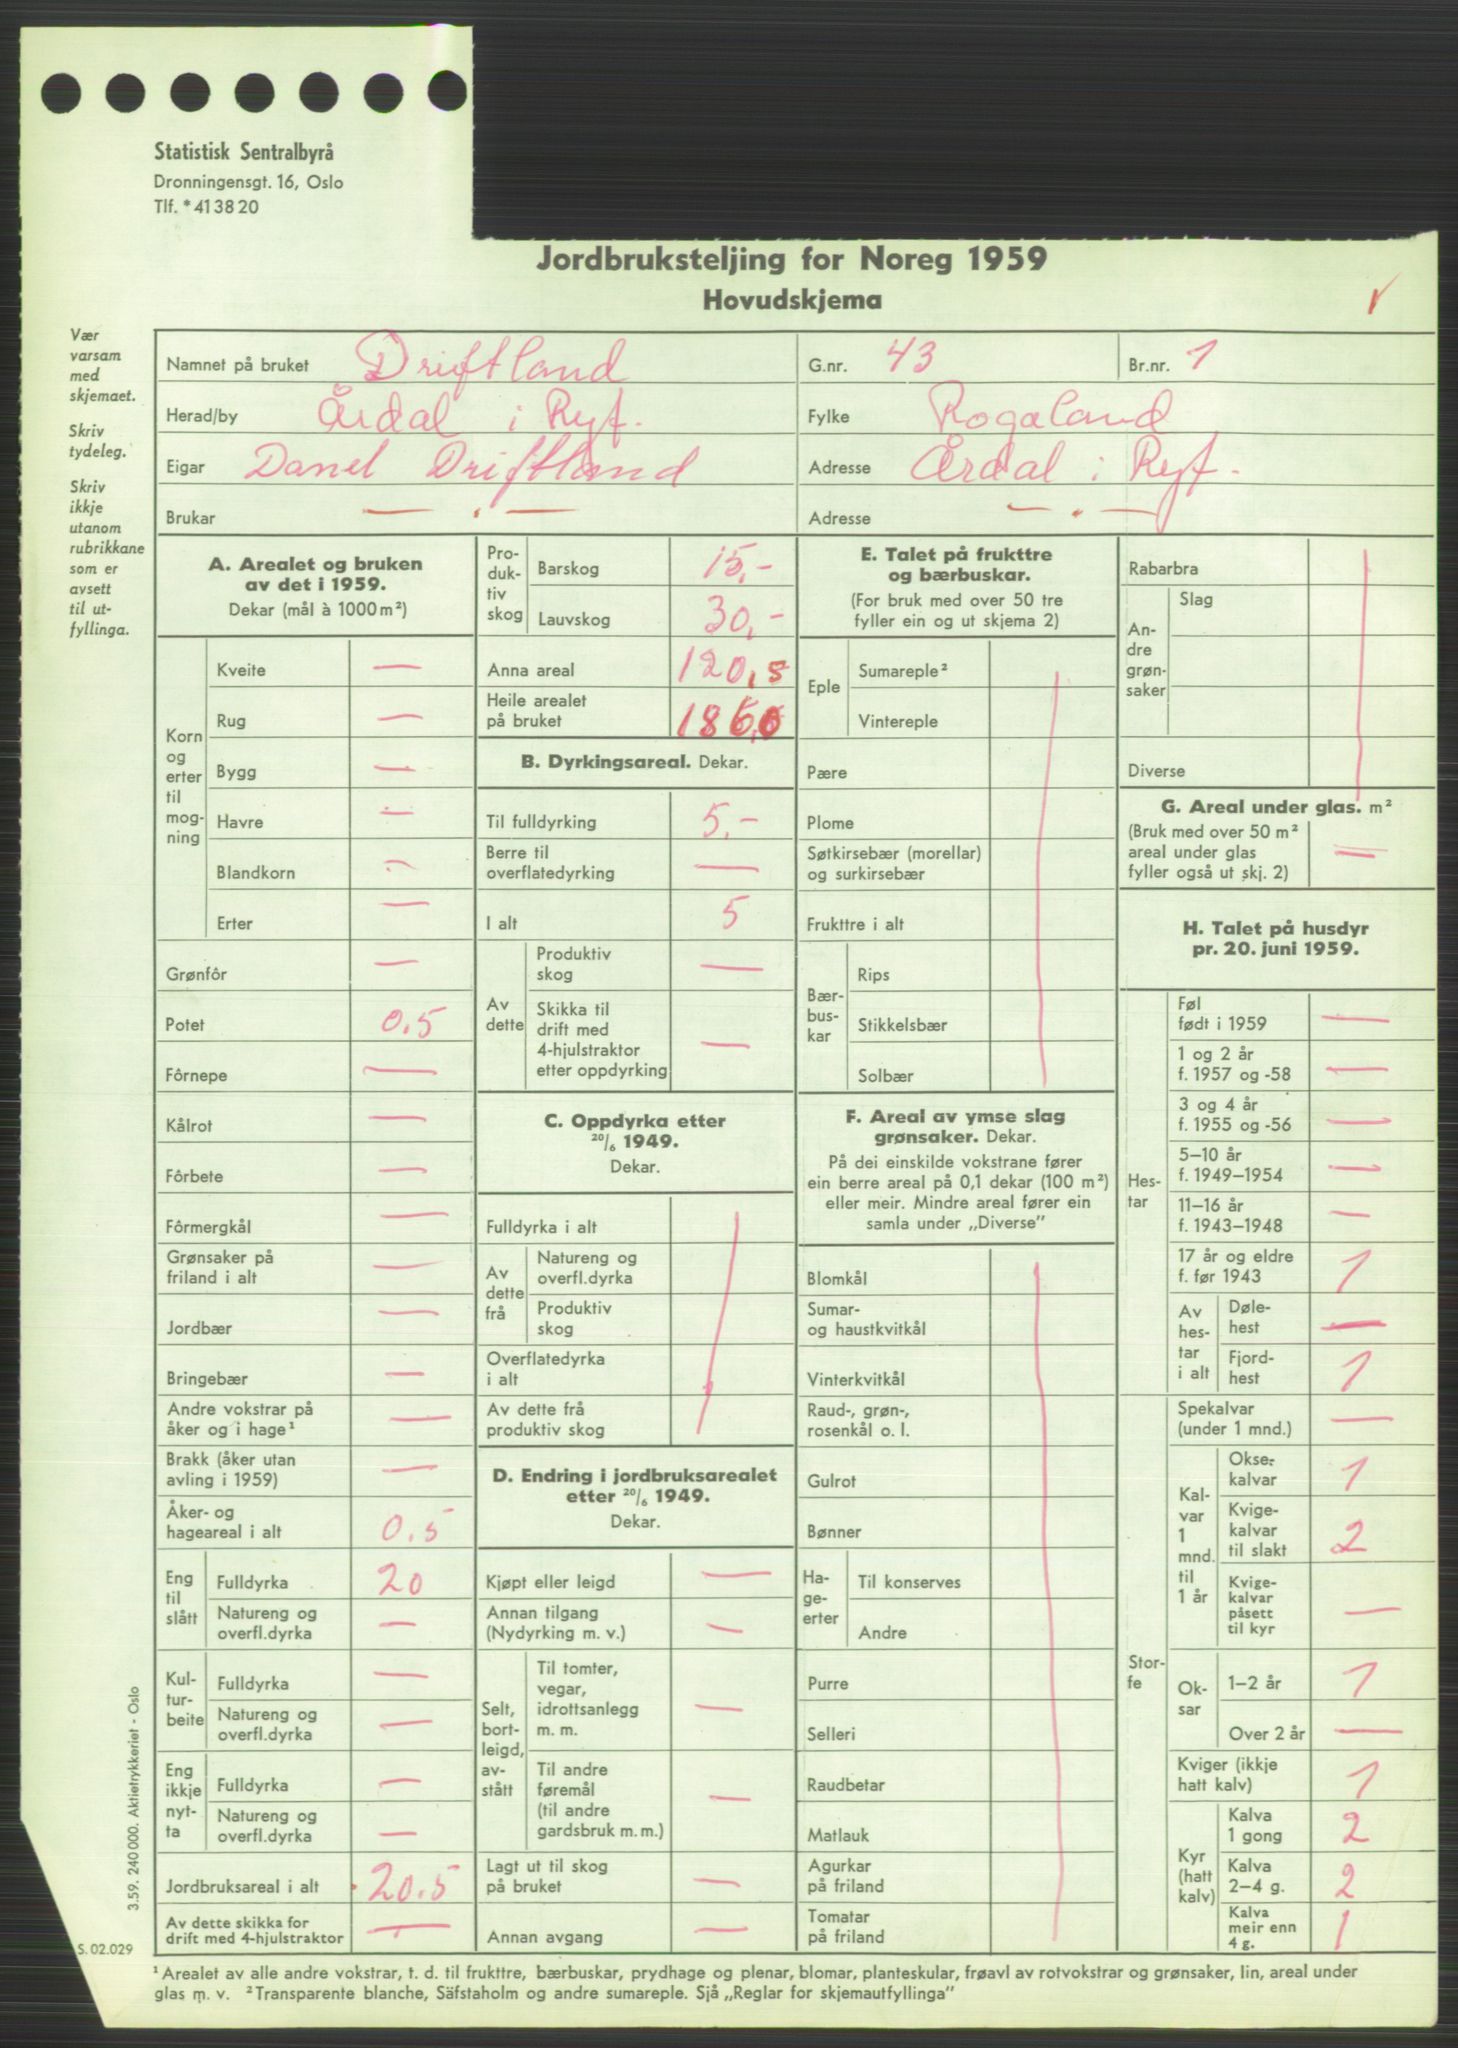 Statistisk Sentralbyrå
Dronningensgt. 16, Oslo
Tlf. * 41 38 20
Jordbruksteljing for Noreg 1959
Hovudskjema
Vær
varsam
med
skjemaet.
Skriv
tydeleg.
Skriv
ikkje
utanom
rubrikkane
som er
avsett
til ut-
fyllinga.
Namnet på bruket Driftland G.nr. 43 Br.nr. 1
Herad/by Årdal i Ryf. Fylke Rogaland
Eigar Danel Driftland Adresse Årdal i Ryf.
Brukar — . — Adresse — . —
A. Arealet og bruken
av det i 1959.
Dekar (mål à 1000 m²)
Korn
og
erter
til
mog-
ning
Kveite —
Rug —
Bygg —
Havre —
Blandkorn —
Erter —
Grønfôr —
Potet 0.5
Fôrnepe —
Kålrot —
Fôrbete —
Fôrmergkål —
Grønsaker på
friland i alt —
Jordbær —
Bringebær —
Andre vokstrar på
åker og i hage¹ —
Brakk (åker utan
avling i 1959) —
Åker- og
hageareal i alt 0.5
Eng
til
slått
Fulldyrka 20
Natureng og
overfl.dyrka —
Kul-
tur-
beite
Fulldyrka —
Natureng og
overfl.dyrka —
Eng
ikkje
nyt-
ta
Fulldyrka —
Natureng og
overfl.dyrka —
Jordbruksareal i alt 20.5
Av dette skikka for
drift med 4-hjulstraktor —
Pro-
duk-
tiv
skog
Barskog 15,-
Lauvskog 30,-
Anna areal 120,5
Heile arealet
på bruket
B. Dyrkingsareal. Dekar.
Til fulldyrking 5,-
Berre til
overflatedyrking —
I alt 5
Av
dette
Produktiv
skog —
Skikka til
drift med
4-hjulstraktor
etter oppdyrking —
C. Oppdyrka etter
20/6 1949.
Dekar.
Fulldyrka i alt
Av
dette
frå
Natureng og
overfl.dyrka
Produktiv
skog
Overflatedyrka
i alt
Av dette frå
produktiv skog
D. Endring i jordbruksarealet
etter 20/6 1949.
Dekar.
Kjøpt eller leigd —
Annan tilgang
(Nydyrking m. v.) —
Selt,
bort-
leigd,
av-
stått
Til tomter,
vegar,
idrottsanlegg
m. m. —
Til andre
føremål
(til andre
gardsbruk m. m.) —
Lagt ut til skog
på bruket —
Annan avgang —
E. Talet på frukttre
og bærbuskar.
(For bruk med over 50 tre
fyller ein og ut skjema 2)
Eple
Sumareple²
Vintereple
Pære
Plome
Søtkirsebær (morellar)
og surkirsebær
Frukttre i alt
Bær-
bus-
kar
Rips
Stikkelsbær
Solbær
F. Areal av ymse slag
grønsaker. Dekar.
På dei einskilde vokstrane fører
ein berre areal på 0,1 dekar (100 m²)
eller meir. Mindre areal fører ein
samla under „Diverse”
Blomkål
Sumar-
og haustkvitkål
Vinterkvitkål
Raud-, grøn-,
rosenkål o. l.
Gulrot
Bønner
Ha-
ge-
erter
Til konserves
Andre
Purre
Selleri
Raudbetar
Matlauk
Agurkar
på friland
Tomatar
på friland
Rabarbra
An-
dre
grøn-
saker
Slag
Diverse
G. Areal under glas. m²
(Bruk med over 50 m²
areal under glas
fyller også ut skj. 2) —
H. Talet på husdyr
pr. 20. juni 1959.
Hes-
tar
Føl
født i 1959 —
1 og 2 år
f. 1957 og -58 —
3 og 4 år
f. 1955 og -56 —
5–10 år
f. 1949–1954 —
11–16 år
f. 1943–1948 —
17 år og eldre
f. før 1943 1
Av
hes-
tar
i alt
Døle-
hest —
Fjord-
hest 1
Stor-
fe
Spekalvar
(under 1 mnd.) —
Kal-
var
1
mnd.
til
1 år
Okse-
kalvar 1
Kvige-
kalvar
til slakt 2
Kvige-
kalvar
påsett
til kyr —
Ok-
sar
1–2 år 1
Over 2 år —
Kviger (ikkje
hatt kalv) 1
Kyr
(hatt
kalv)
Kalva
1 gong 2
Kalva
2–4 g. 2
Kalva
meir enn
4 g. 1
3.59. 240 000. Aktietrykkeriet - Oslo
S. 02.029
¹ Arealet av alle andre vokstrar, t. d. til frukttre, bærbuskar, prydhage og plenar, blomar, planteskular, frøavl av rotvokstrar og grønsaker, lin, areal under
glas m. v. ² Transparente blanche, Säfstaholm og andre sumareple. Sjå „Reglar for skjemautfyllinga”